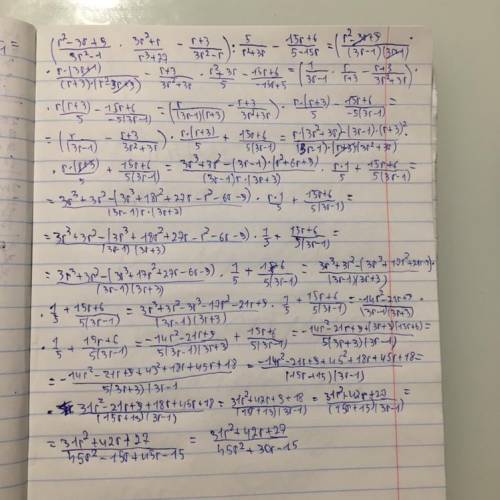 (r²-3r+9/9r²-1 · 3r²+r/r³+27 - r+3/3r²-r) : 5/r²+3r - 15r+6/5-15r = (r²-3r+9/(3r-1)(3r-1)
· r·(3r+1)/(r+3)·(r²-3r+9) - r+3/3r²+3r) · r²+3r/5 - 15r+6/-15r+5 = (1/3r-1 · r/r+3 - r+3/3r²+3r) ·
· r(r+3)/5 - 15r+6/-5(3r-1) = (r/(3r-1)(r+3) - r+3/3r²+3r) · r·(r+3)/5 - 15r+6/-5(3r-1) =
= (r/(3r-1)(r+3) - r+3/3r²+3r) · r·(r+3)/5 + 15r+6/5(3r-1) = r·(3r²+3r)-(3r-1)·(r+3)²/(3r-1)·(r+3)(3r²+3r) ·
· r·(r+3)/5 + 15r+6/5(3r-1) = 3r³+3r²-(3r-1)·(r²+6r+9)/(3r-1)r·(3r+3) · r·1/5 + 15r+6/5(3r-1) =
= 3r³+3r²-(3r³+18r²+27r-r²-6r-9)/(3r-1)r·(3r+3) · r·1/5 + 15r+6/5(3r-1) =
= 3r³+3r²-(3r³+18r²+27r-r²-6r-9)/(3r-1)(3r+3) · 1/5 + 15r+6/5(3r-1) =
= 3r³+3r²-(3r³+17r²+27r-6r-9)/(3r-1)(3r+3) · 1/5 + 15r+6/5(3r-1) = 3r³+3r²-(3r³+17r²+21r-9)/(3r-1)(3r+3) ·
· 1/5 + 15r+6/5(3r-1) = 3r³+3r²-3r³-17r²-21r+9/(3r-1)(3r+3) · 1/5 + 15r+6/5(3r-1) = -14r²-21r+9/(3r-1)(3r+3) ·
· 1/5 + 15r+6/5(3r-1) = -14r²-21r+9/5(3r-1)(3r+3) + 15r+6/5(3r-1) = -14r²-21r+9+(3r+3)(15r+6)/5(3r+3)(3r-1) =
= -14r²-21r+9+45r²+18r+45r+18/5(3r+3)(3r-1) = -14r²-21r+9+45r²+18r+45r+18/(15r+15)(3r-1) =
= 31r²-21r+9+18r+45r+18/(15r+15)(3r-1) = 31r²+42r+9+18/(15r+15)(3r-1) = 31r²+42r+27/(15r+15)(3r-1) =
= 31r²+42r+27/45r²-15r+45r-15 = 31r²+42r+27/45r²+30r-15